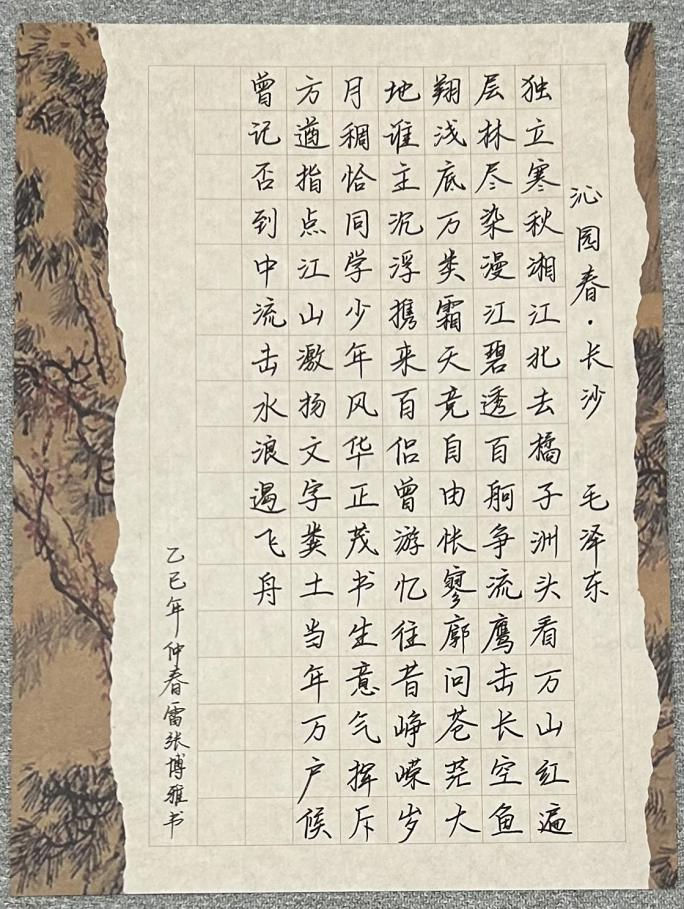 沁园春·长沙 毛泽东
独立寒秋湘江北去橘子洲头看万山红遍
层林尽染漫江碧透百舸争流鹰击长空鱼
翔浅底万类霜天竞自由怅寥廓问苍茫大
地谁主沉浮携来百侣曾游忆往昔峥嵘岁
月稠恰同学少年风华正茂书生意气挥斥
方遒指点江山激扬文字粪土当年万户候
曾记否到中流击水浪遏飞舟
乙巳年仲春雷张博雅书